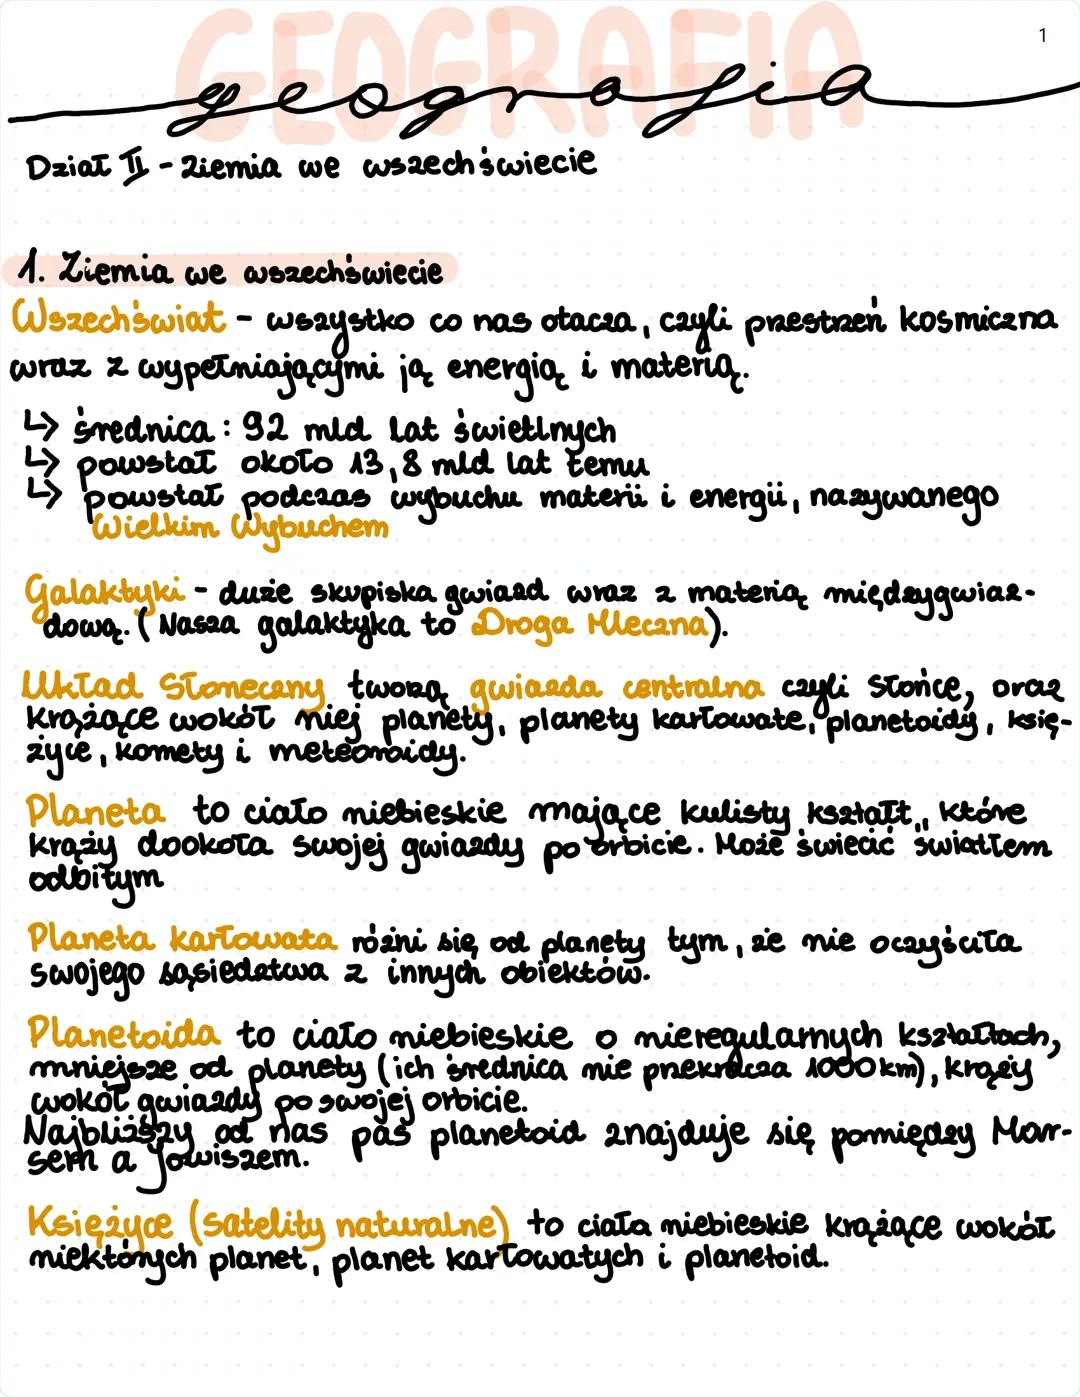 1
GEOGRAFIA
geografia
Dział II - Ziemia we wszechświecie
1. Ziemia we wszechświecie
Wszechświat - wszystko co nas otacza, czyli przestrzeń kosmiczna
wraz z wypełniającymi ją energią i materią.
↳ średnica : 92 mld lat świetlnych
↳ powstał około 13,8 mld lat temu
↳ powstał podczas wybuchu materii i energii, nazywanego
Wielkim Wybuchem
Galaktyki - duże skupiska gwiazd wraz z materią międzygwiaz-
dową. (Nasza galaktyka to Droga Mleczna).
Układ Słoneczny tworzą gwiazda centralna czyli Słońce, oraz
krążące wokół niej planety, planety karłowate, planetoidy, księ-
życe, komety i meteoroidy.
Planeta to ciało niebieskie mające kulisty kształt,, które
krąży dookoła swojej gwiazdy po orbicie. Może świecić światłem
odbitym
Planeta karłowata różni się od planety tym, że nie oczyściła
swojego sąsiedztwa z innych obiektów.
Planetoida to ciało niebieskie o nieregularnych kształtach,
mniejsze od planety (ich średnica nie przekracza 1000 km), krąży
wokół gwiazdy po swojej orbicie.
Najbliższy od nas pas planetoid znajduje się pomiędzy Mar-
sem a Jowiszem.
Księżyce (satelity naturalne) to ciała niebieskie krążące wokół
niektórych planet, planet karłowatych i planetoid.